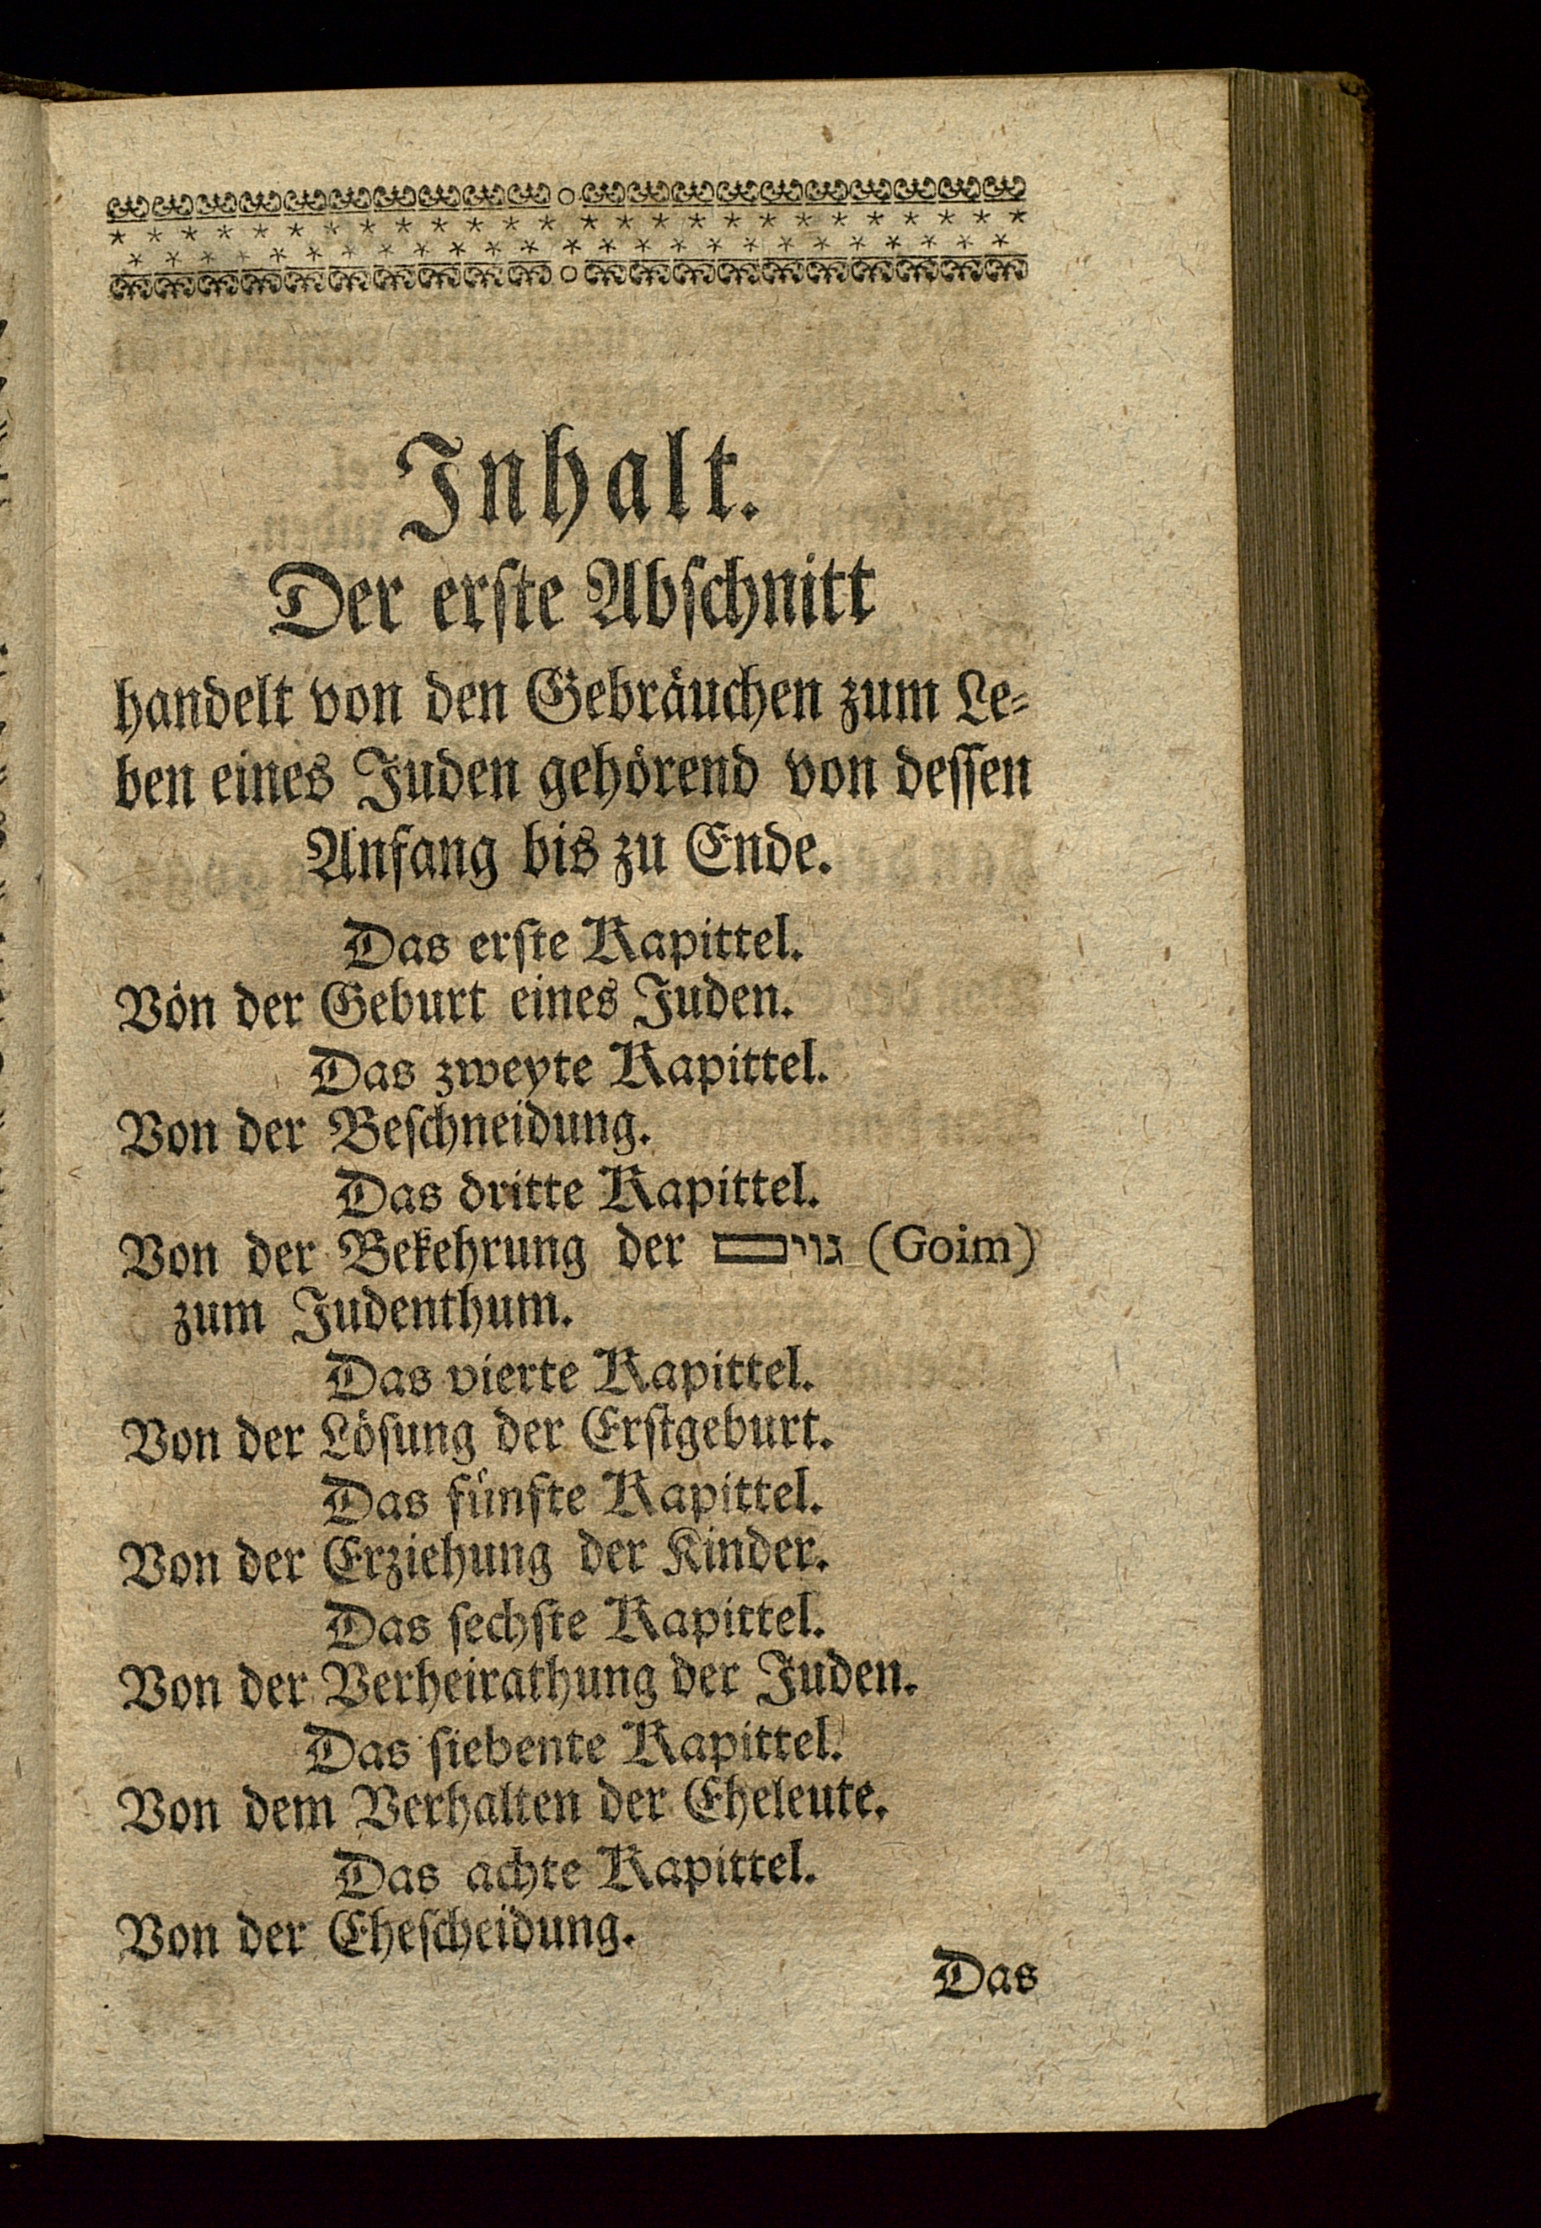 Inhalt.
Der erſte Abſchnitt
handelt von den Gebräuchen zum Le⸗
ben eines Juden gehörend von deſſen
Anfang bis zu Ende.
Das erſte Kapittel.
Von der Geburt eines Juden.
Das zweyte Kapittel.
Von der Beſchneidung.
Das dritte Kapittel.
Von der Bekehrung der גוים (Goim)
zum Judenthum.
Das vierte Kapittel.
Von der Löſung der Erſtgeburt.
Das fünfte Kapittel.
Von der Erziehung der Kinder.
Das ſechſte Kapittel.
Von der Verheirathung der Juden.
Das ſiebente Kapittel.
Von dem Verhalten der Eheleute.
Das achte Kapittel.
Von der Eheſcheidung.
Das